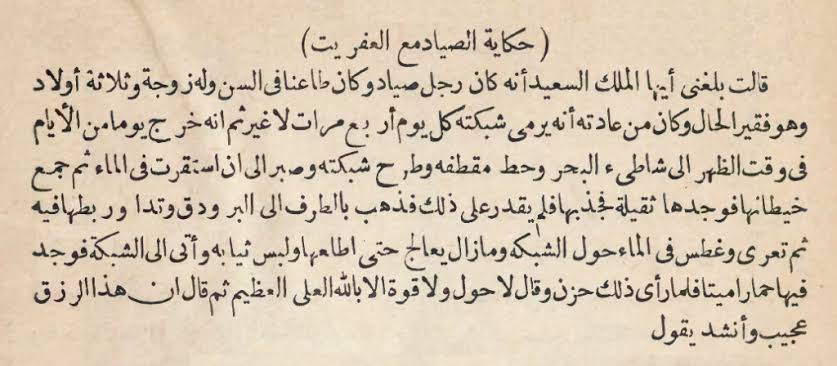 (حكاية الصياد مع العفريت)
قالت بلغنى أيها الملك السعيد أنه كان رجل صياد وكان طاعنا فى السن وله زوجة وثلاثة أولاد
وهو فقير الحال وكان من عادته أنه يرمى شبكته كل يوم أربع مرات لا غير ثم انه خرج يوما من الأيام
فى وقت الظهر الى شاطىء البحر وحط مقطفه وطرح شبكته وصبر الى ان استقرت فى الماء ثم جمع
خيطانها فوجدها ثقيلة فجذبها فلم يقدر على ذلك فذهب بالطرف الى البر ودق وتدا وربطها فيه
ثم تعرى وغطس فى الماء حول الشبكه ومازال يعالج حتى اطلعها ولبس ثيابه وأتى الى الشبكة فوجد
فيها حمارا ميتا فلما رأى ذلك حزن وقال لا حول ولا قوة الا بالله العلى العظيم ثم قال ان هذا الرزق
عجيب وأنشد يقول